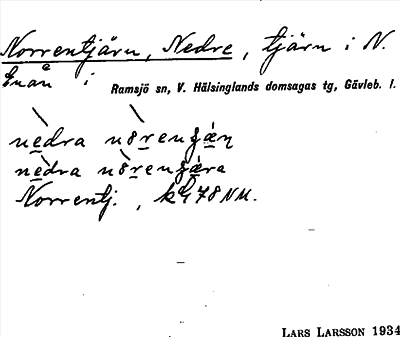 Norrentjärn, Nedre, tjärn i N.
Enån i Ramsjö sn, V. Hälsinglands domsagas tg, Gävleb. l.
nedra
nedra
Norrentj., kbl 78 NM.
LARS LARSSON 1934